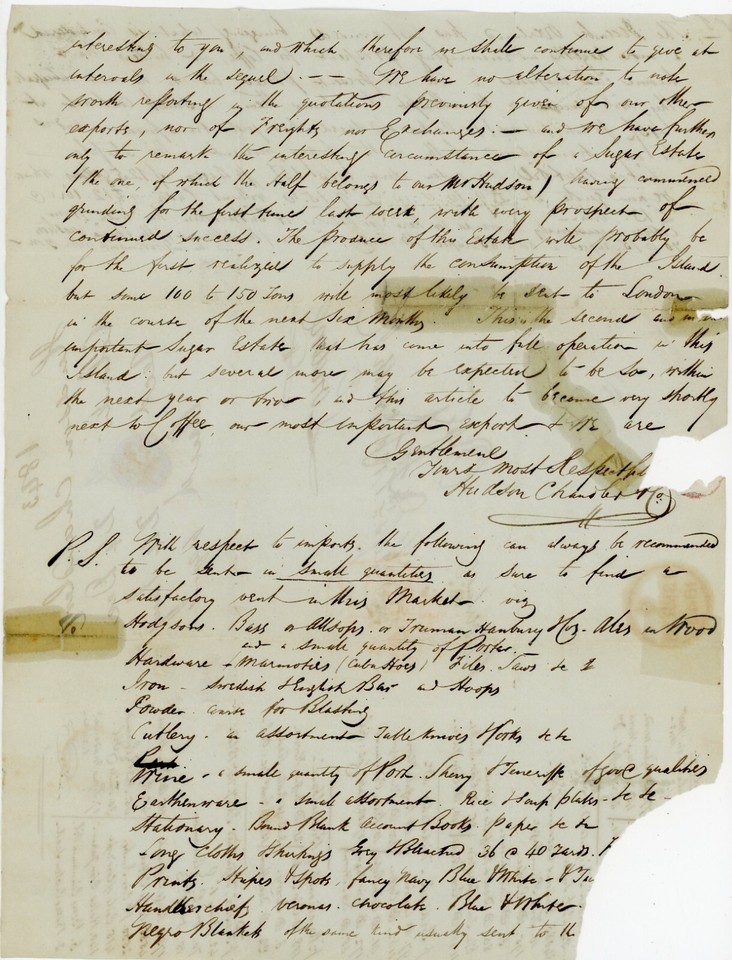 interesting to you, and which therefore we shall continue to give at
intervals in the sequel. — — We have no alteration to note
worth reporting in the quotations previously given of our other
exports, nor of Freights nor Exchanges: — and we have further
only to remark the interesting circumstance of a Sugar Estate
(the one, of which the Half belongs to our Mr Hudson) having commenced
grinding for the first time last week, with every prospect of
continued success. The produce of this Estate will probably be
for the first realized to supply the consumption of the Island
but some 100 to 150 Tons will most likely be sent to London
in the course of the next Six Months. This is the second and
important Sugar Estate that has come into full operation in this
Island: but several more may be expected to be so, within
the next year or two, and this article to become very shortly
next to Coffee, our most important export. & We are
Gentlemen
Yours most Respectful
Hudson Chandler & Co.
P.S. With respect to imports. the following can always be recommended
to be sent in small quantities as sure to find a
satisfactory vent in this Market. viz
Hodgsons. Bass or Allsops. or Truman Hanbury & Co. Ales in Wood
and a small quantity of Porter.
Hardware - Marmoties (Cuba Hoes) Files. Saws &c &c
Iron - Swedish & English Bar and Hoops
Powder. coarse for Blasting
Cutlery - an assortment Table Knives & Forks &c &c
Wine - a small quantity of Port. Sherry & Teneriffe of good qualities
Earthenware - a small assortment. Rice & Soup plates - &c &c -
Stationary - Bound Blank Account Books. paper &c &c
Long Cloths & Shirtings Grey & Bleached 36 @ 40 Yards.
Prints. Stripes & Spots, fancy Navy Blue & White - &
Handkerchiefs veronas. chocolate. Blue & White -
Negro Blankets of the same kind usually sent to th